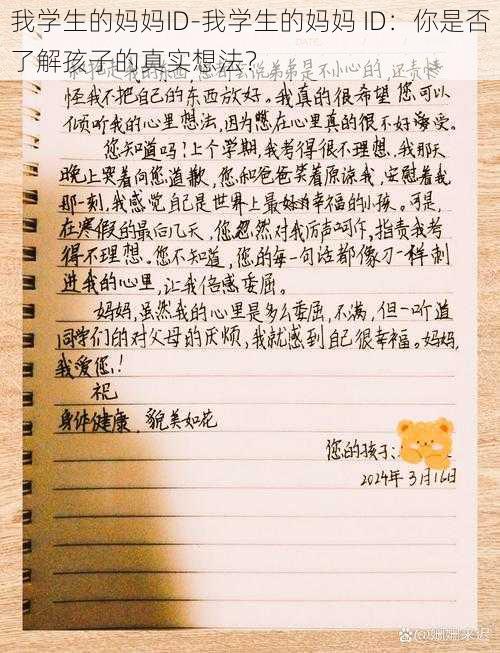 我学生的妈妈ID-我学生的妈妈 ID：你是否
了解孩子的真实想法？
我的东西,您却会说弟弟是不小心的,还责怪
怪我不把自己的东西放好。我真的很希望您可以
倾听我的心里想法,因为憋在心里真的很不好受。
您知道吗!上个学期,我考得很不理想。我那天
晚上哭着向您道歉,您和爸爸笑着原谅我,安慰着我
那一刻,我感觉自己是世界上最幸福的小孩。可是,
在寒假的最后几天,您忽然对我厉声呵斥,指责我考
得不理想。您不知道,您的每一句话都像刀一样刺
进我的心里,让我倍感委屈。
妈妈,虽然我的心里是多么委屈,不满,但一听道
同学们的对父母的厌烦,我就感到自己很幸福。妈妈,
我爱您!
祝
身体健康,貌美如花
您的孩子:
2024年3月16日
百家号@姗姗来迟